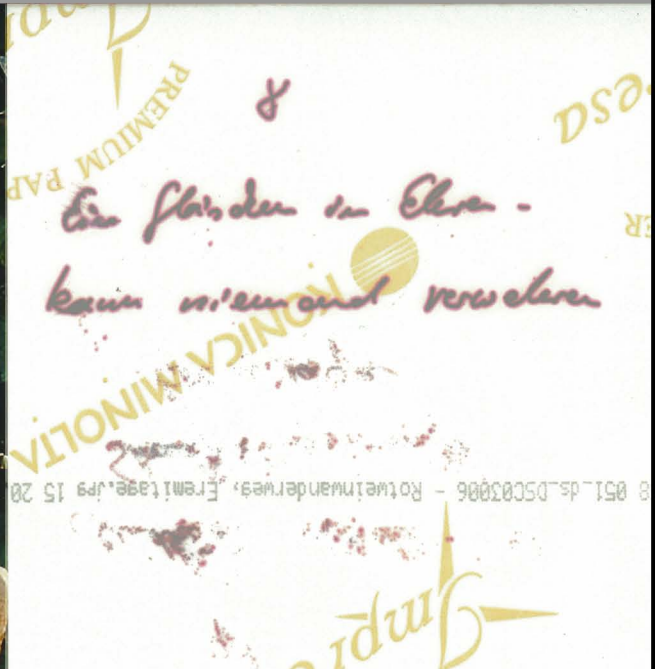 Impr
PREMIUM PAP
8
esa
ER
Ein Gläschen in Ehren -
kann niemand verwehren
KONICA MINOLTA
8 051_ds_DSC03006 - Rotweinwanderweg, Eremitage.jpg 15 20
Impre